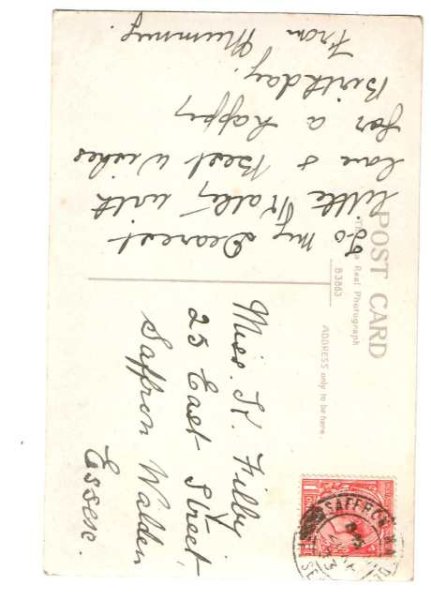 POST CARD
Real Photograph
B3863
ADDRESS only to be here.
To my Dearest
little with
love & Best Wishes
for a happy
Birthday.
From Mummy.
Miss. K. Filby
25 East Street,
Saffron Walden
Essex.
SAFFRON